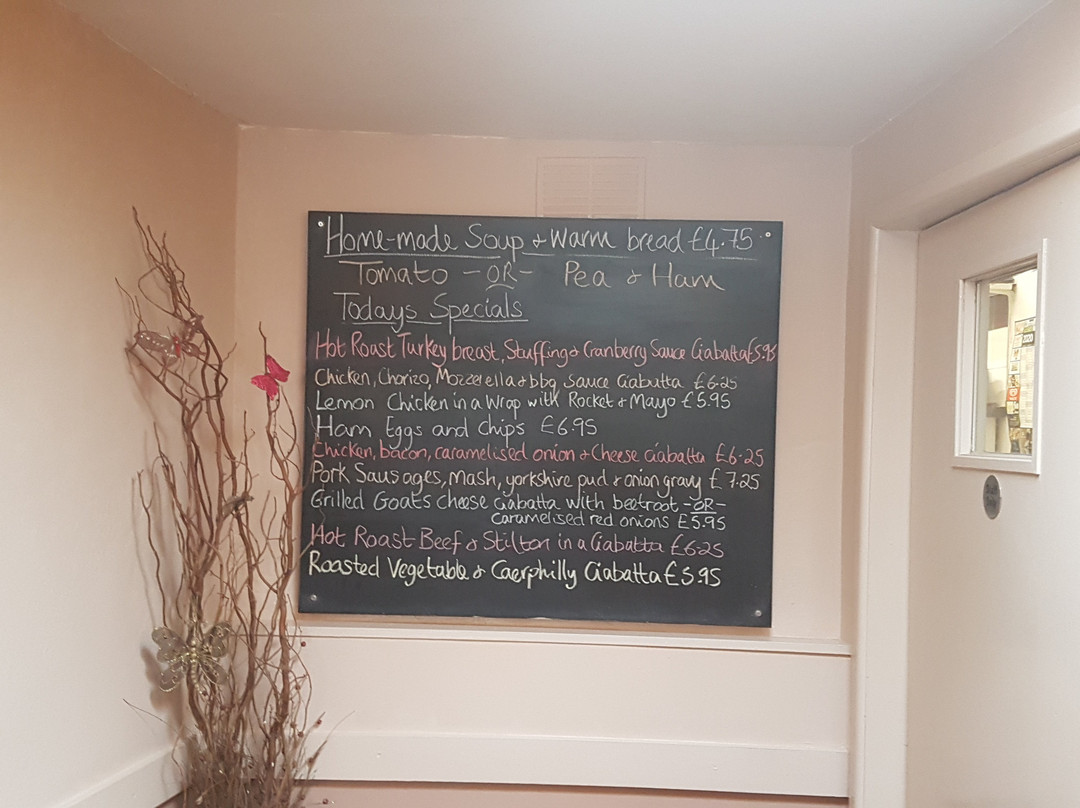 Home-made Soup & Warm bread £4.75
Tomato -OR- Pea & Ham
Todays Specials
Hot Roast Turkey breast, Stuffing & Cranberry Sauce Ciabatta £5.95
Chicken, Chorizo, Mozzerella & bbq Sauce Ciabatta £6.25
Lemon Chicken in a Wrap with Rocket & Mayo £5.95
Ham Eggs and chips £6.95
Chicken, bacon, caramelised onion & Cheese Ciabatta £6.25
Pork Sausages, Mash, yorkshire pud & onion gravy £7.25
Grilled Goats cheese Ciabatta with beetroot -OR-
Caramelised red onions £5.95
Hot Roast Beef & Stilton in a Ciabatta £6.25
Roasted Vegetable & Caerphilly Ciabatta £5.95